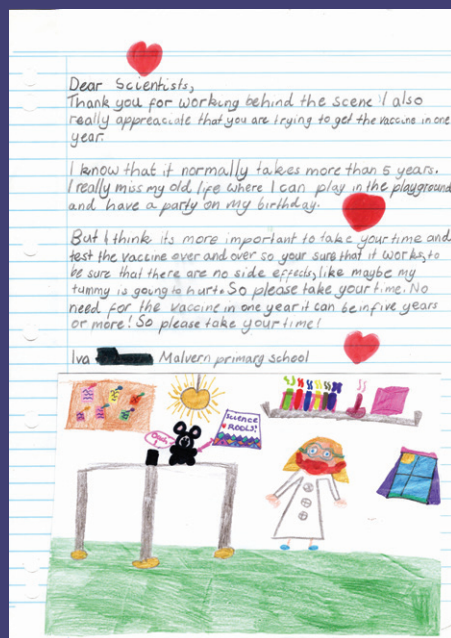 Dear Scientists,
Thank you for working behind the scene! I also
really appreaciate that you are trying to get the vaccine in one
year.
I know that it normally takes more than 5 years.
I really miss my old life where I can play in the playground
and have a party on my birthday.
But I think its more important to take your time and
test the vaccine over and over so your sure that it works, to
be sure that there are no side effects, like maybe my
tummy is going to hurt. So please take your time. No
need for the vaccine in one year it can be in five years
or more! So please take your time!
Iva Malvern primary school
SCIENCE
ROCKS!